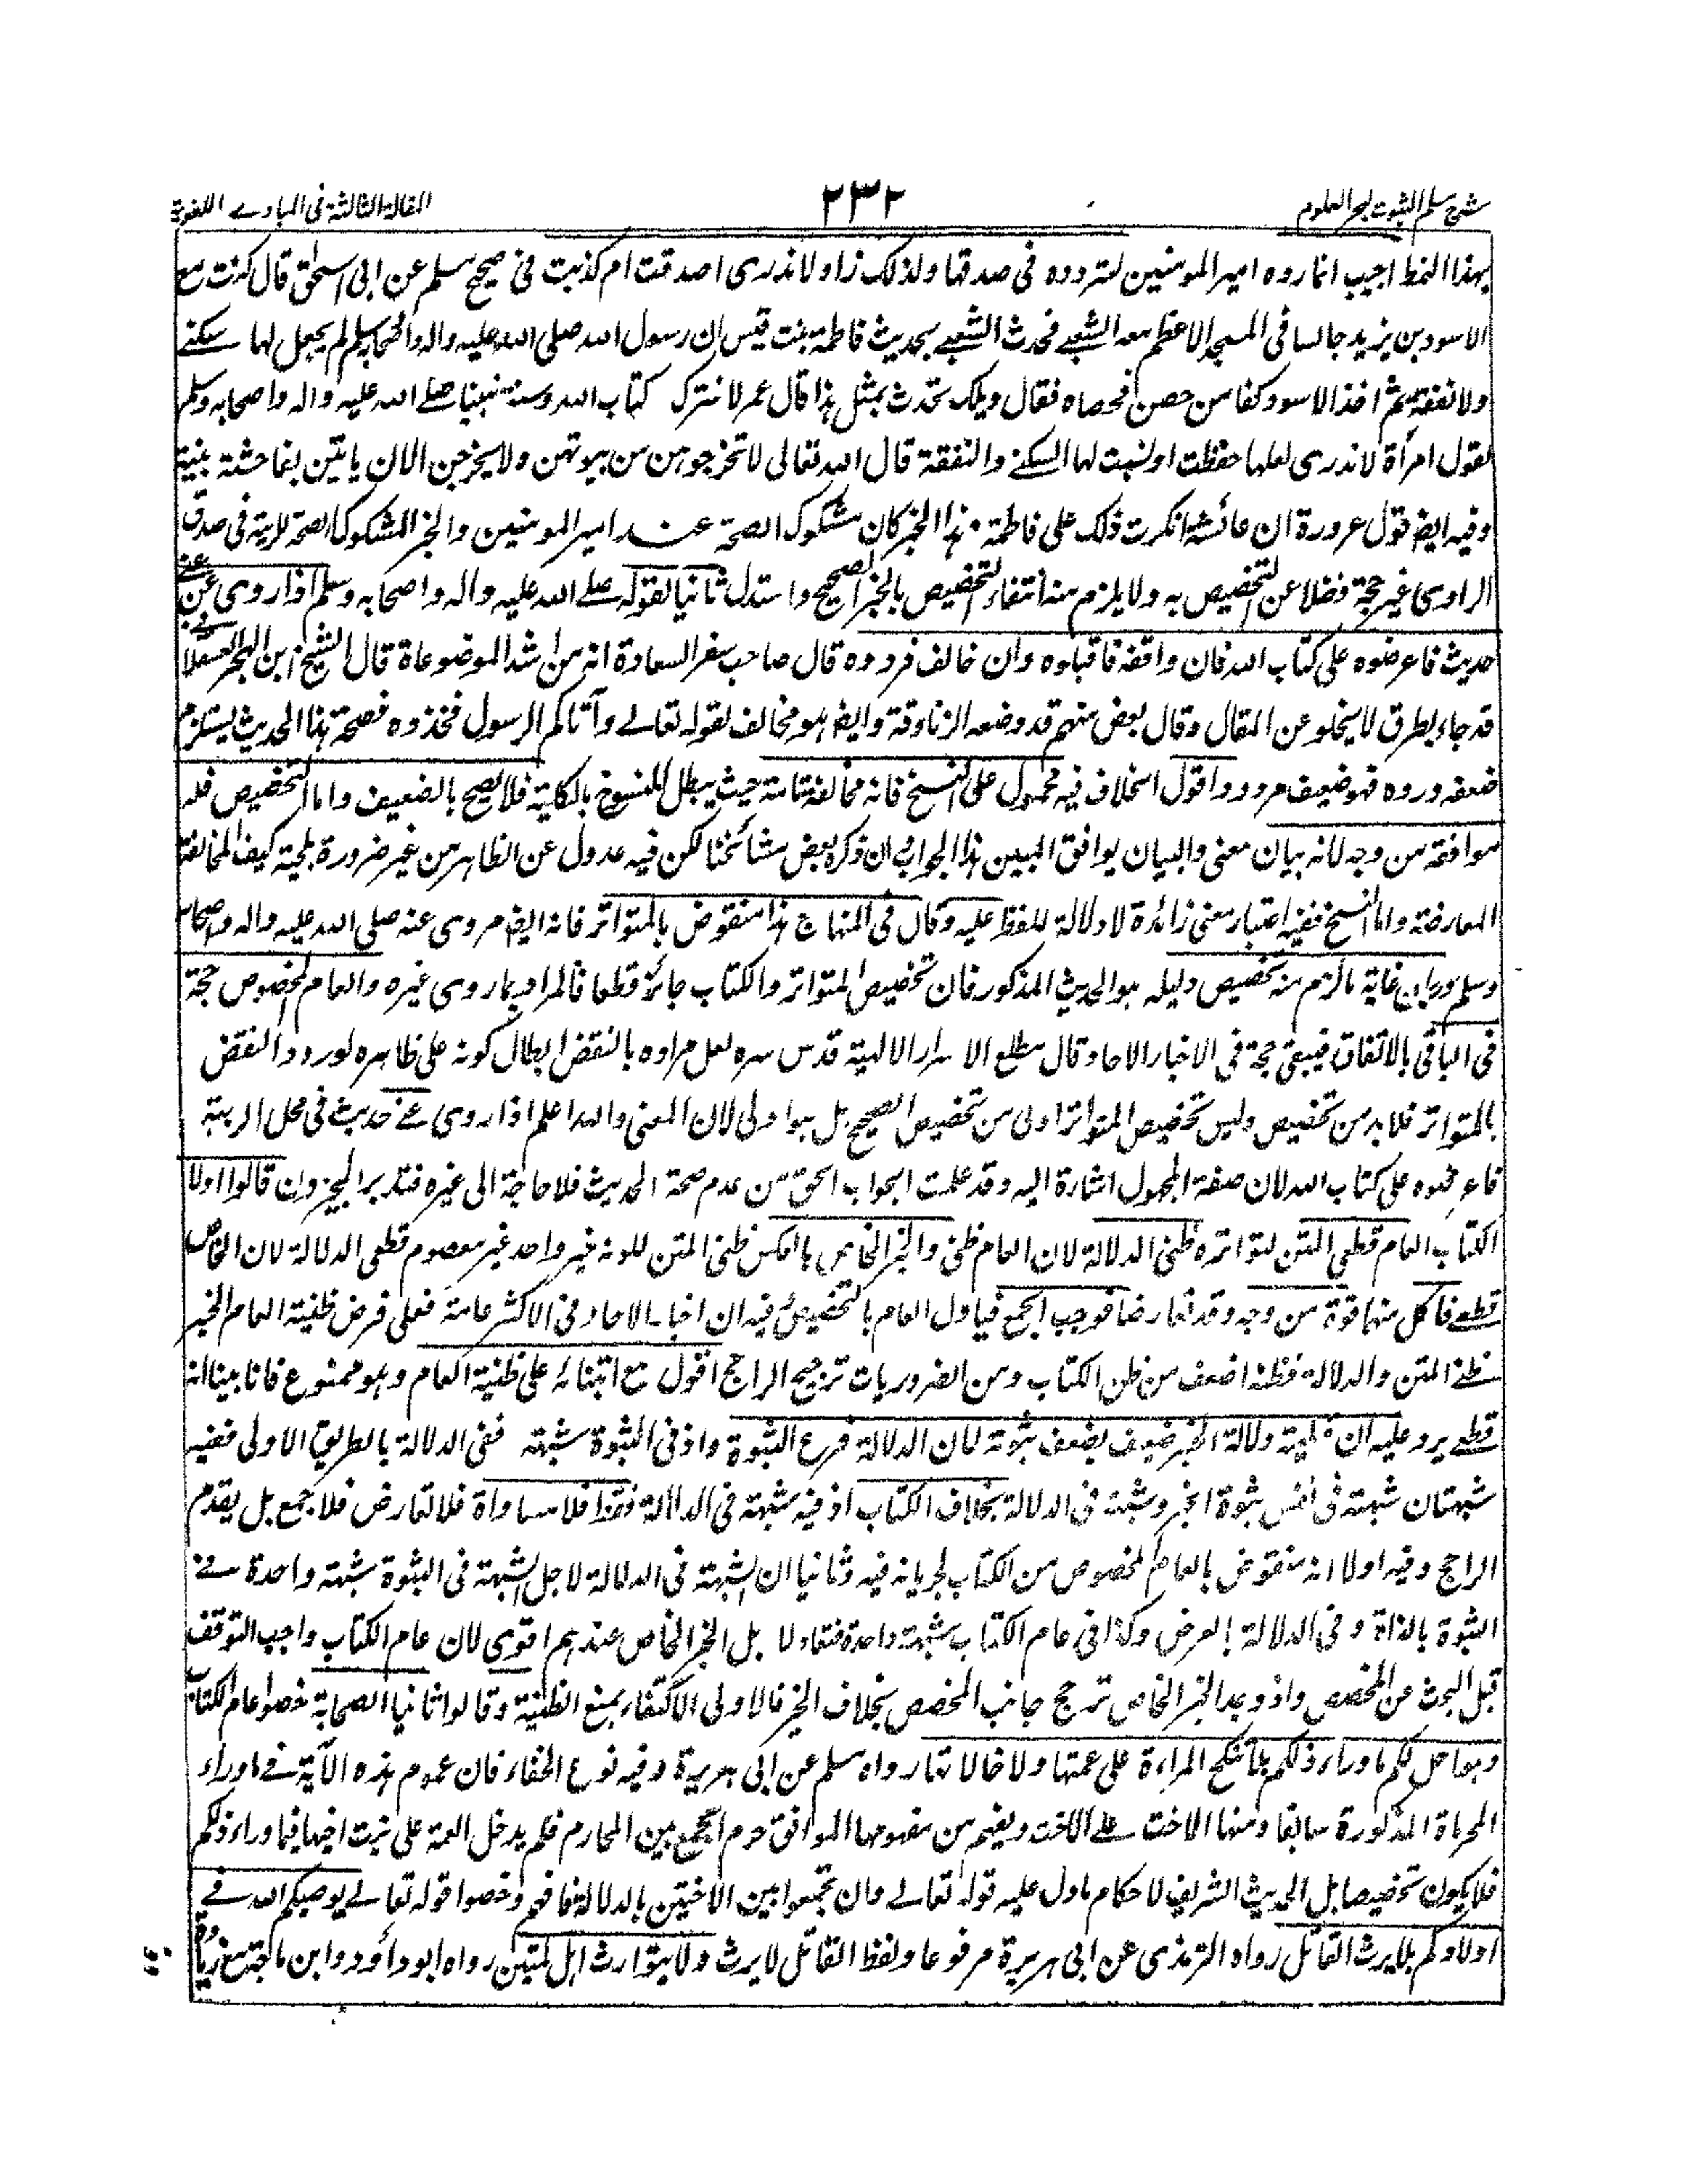 شرح سلم الثبوت لبحر العلوم
٢٣٢
المقالة الثالثة فى المبادے اللغوية
بهذا النمط اجيب انما رده امير المومنين لتردده فى صدقها ولذلك زاد ولا ندرى اصدقت ام كذبت فى صحيح مسلم عن ابى اسحاق قال كنت مع
الاسود بن يزيد جالسا فى المسجد الاعظم معه الشعبے فحدث الشعبے بحديث فاطمة بنت قيس ان رسول الله صلى الله عليه واله واصحابه وسلم لم يجعل لها سكنے
ولا نفقة ثم اخذ الاسود كفا من حصى فحصاه فقال ويلك تحدث بمثل هذا قال عمر لا نترك كتاب الله وسنة نبينا صلے الله عليه واله واصحابه وسلم
لقول امرأة لا ندرى لعلها حفظت او نسيت لها السكنے والنفقة قال الله تعالى لا تخرجوهن من بيوتهن ولا يخرجن الا ان ياتين بفاحشة مبينة
وفيه ايضا قول عروة ان عائشة انكرت ذلك على فاطمة فهذا الخبر كان مشكوك الصحة عند امير المومنين والخبر المشكوك الصحة للريبة فى صدق
الراوى غير حجة فضلا عن التخصيص به ولا يلزم منه انتفاء التخصيص بالخبر الصحيح واستدل ثانيا لقوله صلے الله عليه واله واصحابه وسلم اذا روى عنے
حديث فاعرضوه على كتاب الله فان وافقه فاقبلوه وان خالف فردوه قال صاحب سفر السعادة انه من اشد الموضوعاة قال الشيخ ابن الحجر العسقلانے
قد جاء بطرق لا يخلو عن المقال وقال بعض منهم قد وضعه الزنادقة وايضا هو مخالف لقوله تعالے وآتاكم الرسول فخذوه فصحة هذا الحديث يستلزم
ضعفه ورده فهو ضعيف مردود واقول الخلاف فيه محمول على النسخ فانه مخالفة تامة حيث يبطل المنسوخ بالكلية فلا يصح بالضعيف واما التخصيص فله
موافقة من وجه لانه بيان معنى والبيان يوافق المبين هذا الجواب ان ذكره بعض مشائخنا لكن فيه عدول عن الظاهر من غير ضرورة ملجئة كيف المخالفة
المعارضة واما النسخ ففيه اعتبار معنى زائدة لا دلالة للفظ عليه وقال فى المنهاج هذا منقوض بالمتواتر فانه ايضا مروى عنه صلى الله عليه واله واصحابه
وسلم وبان غاية ما لزم منه تخصيص دليله هو الحديث المذكور فان تخصيص المتواتر والكتاب جائز قطعا فالمراد بما روى غيره والعام المخصوص حجة
فى الباقى بالاتفاق فيبقى حجة فى الاخبار الاحاد قال مطلع الاسرار الالهية قدس سره لعل مراده بالنقض ابطال كونه على ظاهره لورود النقض
بالمتواتر فلا بد من تخصيص وليس تخصيص المتواتر اولى من تخصيص الصحيح بل هو اولى لان المعنى والله اعلم اذا روى عنے حديث فى محل الريبة
فاعرضوه على كتاب الله لان صفة المجهول اشارة اليه وقد علمت الجواب الحق من عدم صحة الحديث فلا حاجة الى غيره فتدبر المجيزون قالوا اولا
الكتاب العام قطعى المتن لتواتره ظنى الدلالة لان العام ظنى والخبر الخاص بالعكس ظنى المتن لكونه خبر واحد غير معصوم قطعى الدلالة لان الخاص
قطعے فلكل منهما قوة من وجه وقد تعارضا فوجب الجمع فيأول العام بالتخصيص فيه ان اخبار الاحاد فى الاكثر عامة فعلى فرض ظنية العام الخبر
ظنے المتن والدلالة فظنه اضعف من ظن الكتاب ومن الضروريات ترجيح الراجح اقول مع ابتنائه على ظنية العام وهو ممنوع فانا بينا انه
قطعے يرد عليه ان قطعية دلالة الخبر ضعيف بضعف ثبوته لان الدلالة فرع الثبوة واذ فى الثبوة شبهة ففى الدلالة بالطريق الاولى ففيه
شبهتان شبهة فى نفس ثبوة الخبر وشبهة فى الدلالة بخلاف الكتاب اذ فيه شبهة فى الدلالة فقط فلا مساواة فلا تعارض فلا جمع بل يقدم
الراجح وفيه اولا انه منقوض بالعام المخصوص من الكتاب لجريانه فيه وثانيا ان الشبهة فى الدلالة لاجل الشبهة فى الثبوة شبهة واحدة فے
الثبوة بالذاة وفى الدلالة بالعرض وكذا فى عام الكتاب شبهة واحدة فتعادلا بل الخبر الخاص عندهم اقوى لان عام الكتاب واجب التوقف
قبل البحث عن المخصص واذ وجد الخبر الخاص ترجح جانب المخصص بخلاف الخبر فالاولى الاكتفاء بمنع الظنية وقالوا ثانيا الصحابة خصوا عام الكتاب
وهو احل لكم ما وراء ذلكم بلا تنكح المراءة على عمتها ولا خالاتها رواه مسلم عن ابى هريرة وفيه نوع الخفاء فان عموم هذه الآية فے ما وراء
المحرماة المذكورة سابقا ومنها الاخت علے الاخت ويفهم من مفهومها الموافق حرم الجمع بين المحارم فلم يدخل العمة على بنت اخيها فيما وراء ذلكم
فلا يكون تخصيصا بل الحديث الشريف لاحكام ما دل عليه قوله تعالے وان تجمعوا بين الاختين بالدلالة فافهم وخصوا قوله تعالے يوصيكم الله فے
اولادكم بلا يرث القاتل رواه الترمذى عن ابى هريرة مرفوعا ولفظ القاتل لا يرث ولا يتوارث اهل ملتين رواه ابو داؤد وابن ماجة مع زيادة